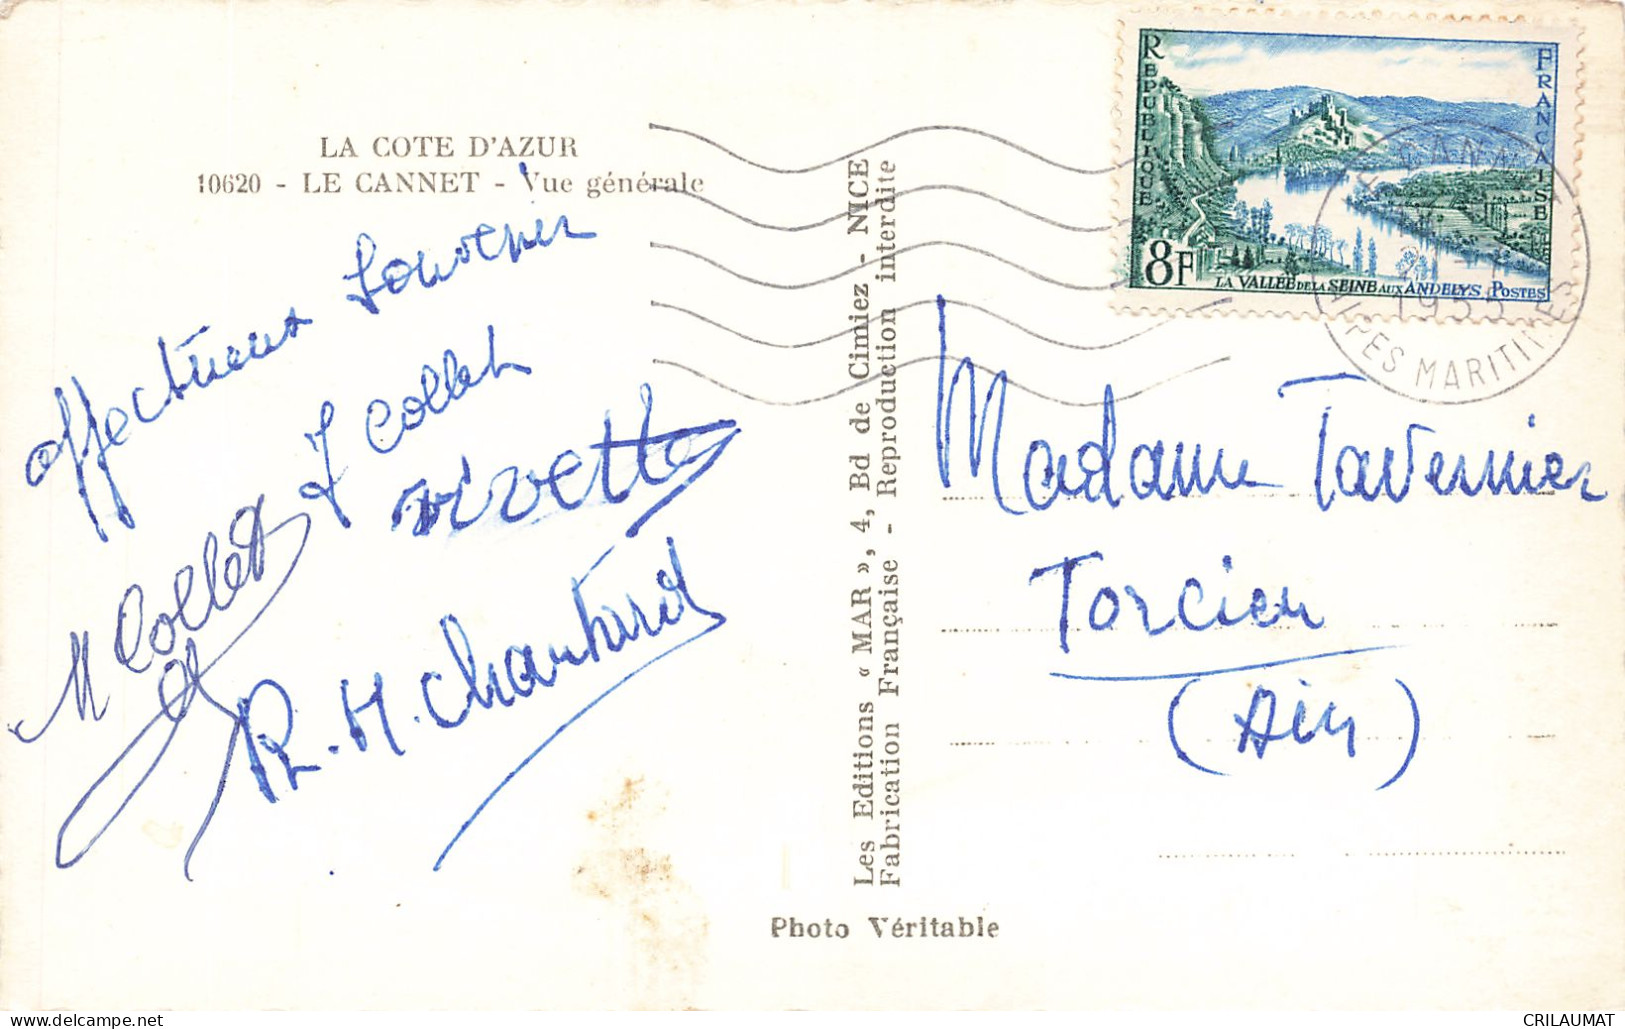 LA COTE D'AZUR
10620 - LE CANNET - Vue générale
affectueux souvenir
J Collet
vivette
M Collet
R.M. Chanhard
Les Editions « MAR », 4, Bd de Cimiez - NICE
Fabrication Française - Reproduction interdite
Photo Véritable
REPUBLIQUE FRANCAISE
8F
LA VALLEE DE LA SEINE AUX ANDELYS. POSTES
CANNET
1955
ALPES MARITIMES
Madame Tavernier
Torcieu
(Ain)
www.delcampe.net
CRILAUMAT